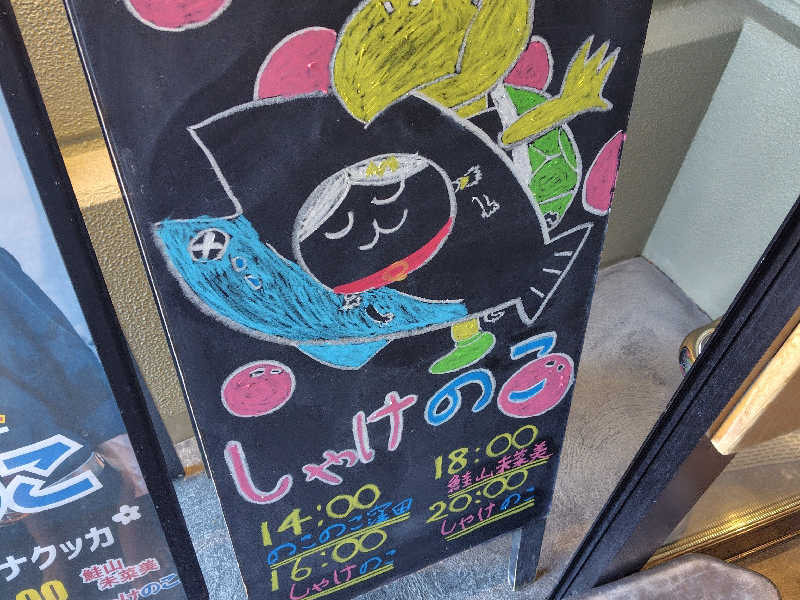 しゃけのこ
14:00
のこのこ窪田
16:00
しゃけのこ
18:00
鮭山未菜美
20:00
しゃけのこ
こ
ナクッカ
鮭山
未菜美
けのこ
00